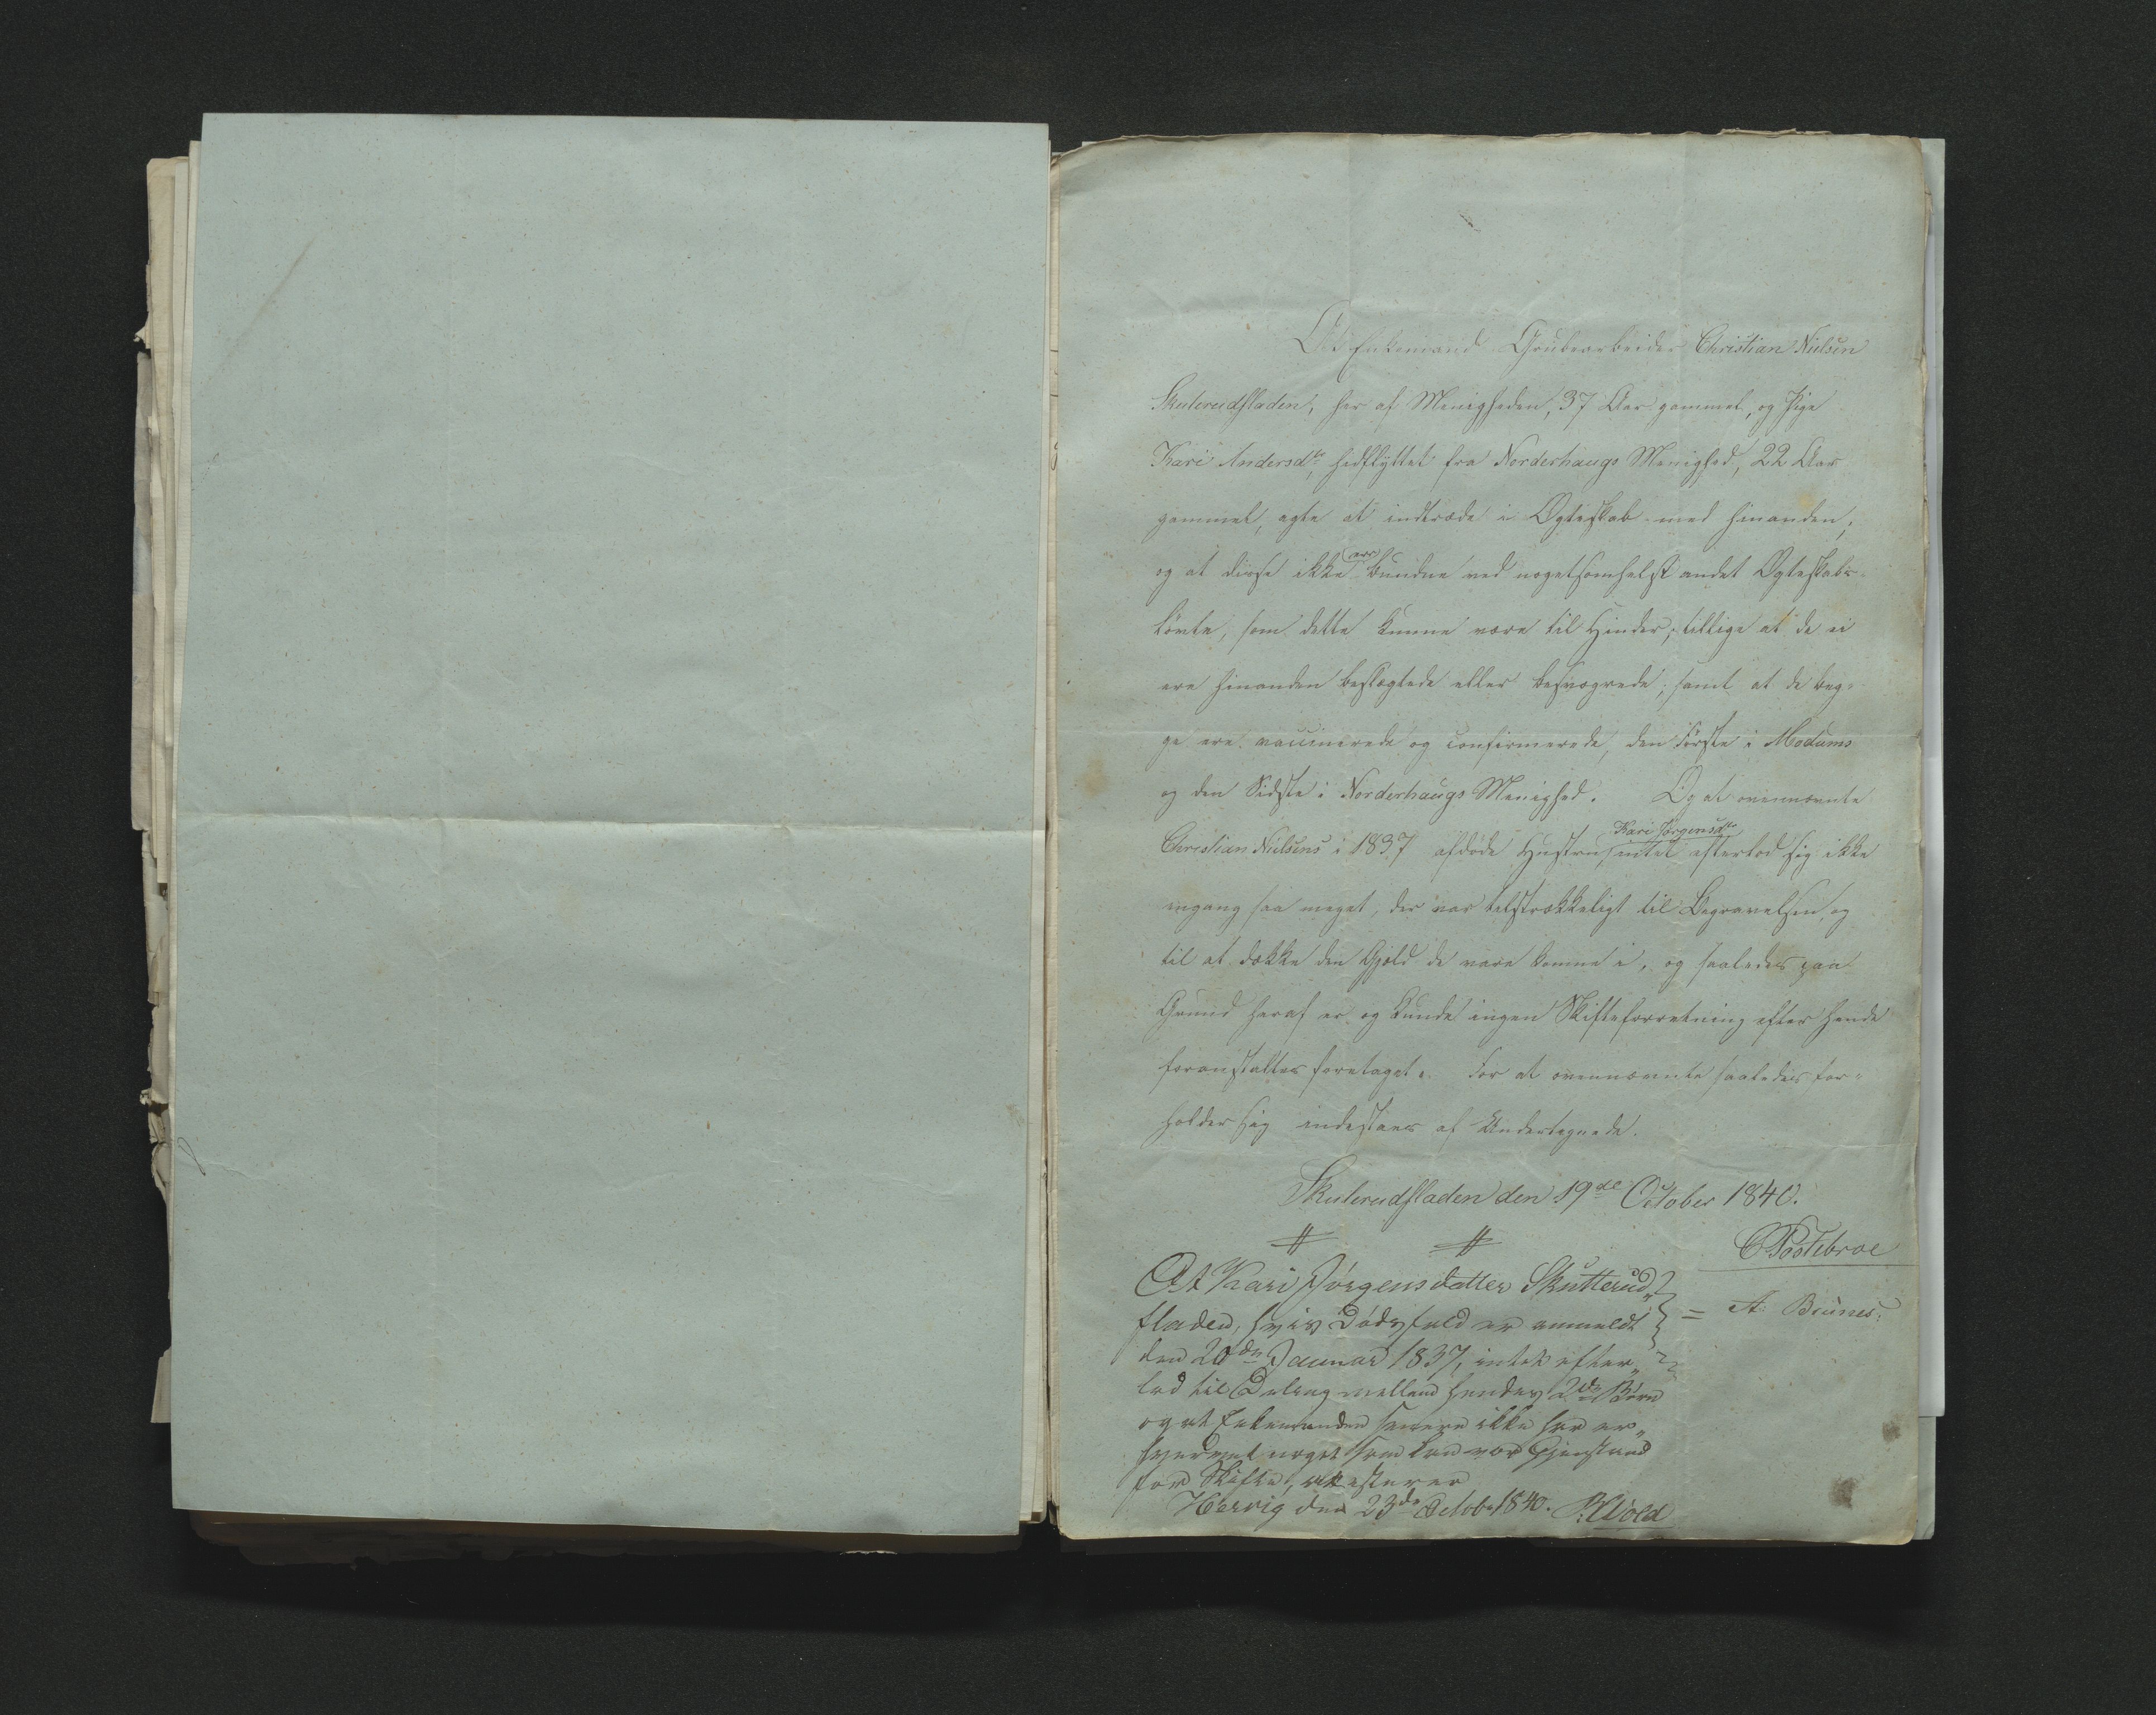 At Enkemand Grubearbeider Christian Nielsen
Skuterudfladen, her af Menigheden, 37 Aar gammel, og Pige
Kari Andersdr, hidflyttet fra Norderhaugs Menighed, 22 Aar
gammel, agte at indtræde i Ægteskab med hinanden,
og at disse ikke ere bundne ved nogetsomhelst andet Ægteskabs-
løvte, som dette kunne være til Hinder; tillige at de ei
ere hinanden beslægtede eller besvogrede; samt at de beg-
ge ere vaccinerede og confirmerede, den Første i Modums
og den Sidste i Norderhaugs Menighed. Og at ovennævnte
Christian Nielsens i 1837 afdøde Hustru Kari Jørgensdr intet efterlod sig ikke
engang saa meget, der var tilstrækkeligt til Begravelsen, og
til at dække den Gjeld de vare komne i, og saaledes paa
Grund heraf er og kunde ingen Skifteforretning efter hende
foranstaltes foretaget. For at ovennævnte saaledes for-
holder sig indestaaes af Undertegnede.
Skuterudfladen den 19de October 1840.
At Kari Jørgensdatter Skutterud-
fladen, hvis Dødsfald er anmeldt
den 20de Januar 1837, intet efter-
lod til Deling mellem hendes 2de Børn
og at Enkemanden senere ikke har er-
hvervet noget som kan være Gjenstand
for Skifte, attesterer
Hervig den 23de Octobr 1840. Wold
A. Brunes.